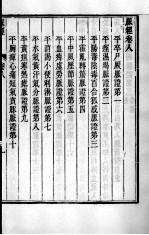 脈經卷八
平卒尸厥脈證第一
平痓濕暍脈證第二
平陽毒陰毒百合狐惑脈證第三
平霍亂轉筋脈證第四
平中風歷節脈證第五
平血痹虛勞脈證第六
平消渴小便利淋脈證第七
平水氣黃汗氣分脈證第八
平黃疸寒熱瘧脈證第九
平胸痹心痛短氣賁豚脈證第十